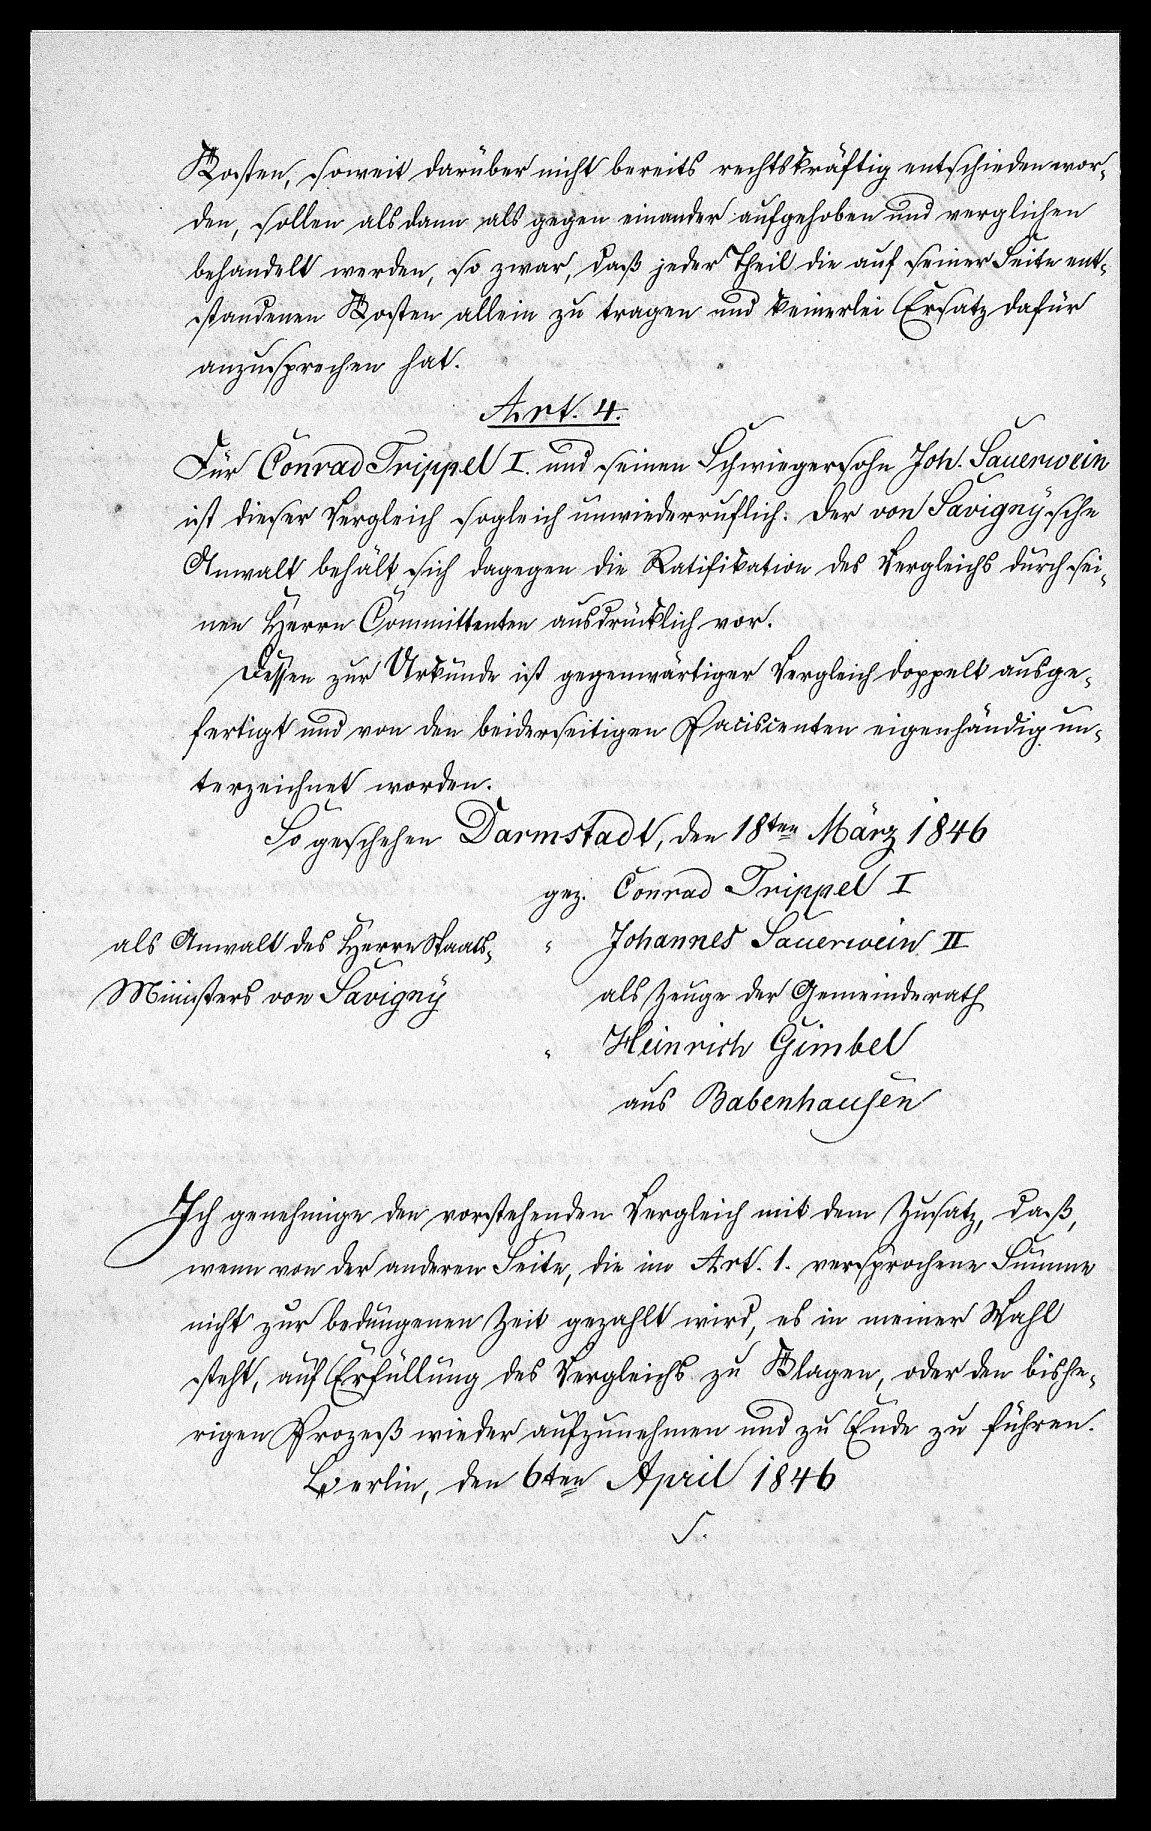 Kosten, soweit darüber nicht bereits rechtskräftig entschieden wor-
den, sollen alsdann als gegen einander aufgehoben und verglichen
behandelt werden, so zwar, daß jeder Theil die auf seiner Seite ent-
standenen Kosten allein zu tragen und keinerlei Ersatz dafür
anzusprechen hat.
Art. 4.
Für Conrad Trippel I. und seinen Schwiegersohn Joh. Sauerwein
ist dieser Vergleich sogleich unwiederruflich. Der von Savigny'sche
Anwalt behält sich dagegen die Ratifikation des Vergleichs durch sei-
nen Herrn Committenten ausdrücklich vor.
Dessen zur Urkunde ist gegenwärtiger Vergleich doppelt ausge-
fertigt und von den beiderseitigen Paciscenten eigenhändig un-
terzeichnet worden.
So geschehen Darmstadt, den 18ten März 1846
gez. Conrad Trippel I
als Anwalt des Herrn Staats- " Johannes Sauerwein II
Ministers von Savigny als Zeuge der Gemeinderath
" Heinrich Gimbel
aus Babenhausen
Ich genehmige den vorstehenden Vergleich mit dem Zusatz, daß,
wenn von der anderen Seite, die im Art. 1. versprochene Summe
nicht zur bedungenen Zeit gezahlt wird, es in meiner Wahl
steht, auf Erfüllung des Vergleichs zu Klagen, oder den bishe-
rigen Prozeß wieder aufzunehmen und zu Ende zu führen.
Berlin, den 6ten April 1846
S.